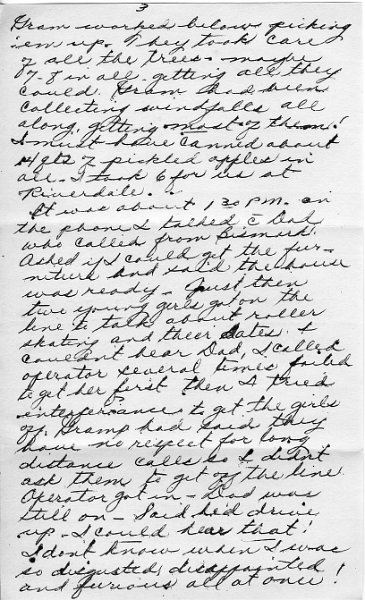 3
Gram worked below picking
'em up. They took care
of all the trees - maybe
7-8 in all - getting all they
could. Gram had been
collecting windfalls all
along, getting most of them!
I must have canned about
14 qts of pickled apples in
all. I took 6 for us at
Riverdale.
It was about 1:30 P.M. on
the phone I talked c̄ Dad
who called from Bismark.
Asked if I could get the fur-
niture and said the house
was ready - Just then
two young girls got on the
line to talk about roller
skating and their dates. I
couldn't hear Dad, I called
operator several times, failed
to get her first then I tried
interferance to get the girls
off. Gramp had said they
have no respect for long
distance calls so I didn't
ask them to get off the line.
Operator got in - Dad was
still on - Said he'd drive
up - I could hear that!
I don't know when I was
so disgusted, disappointed
and furious all at once!